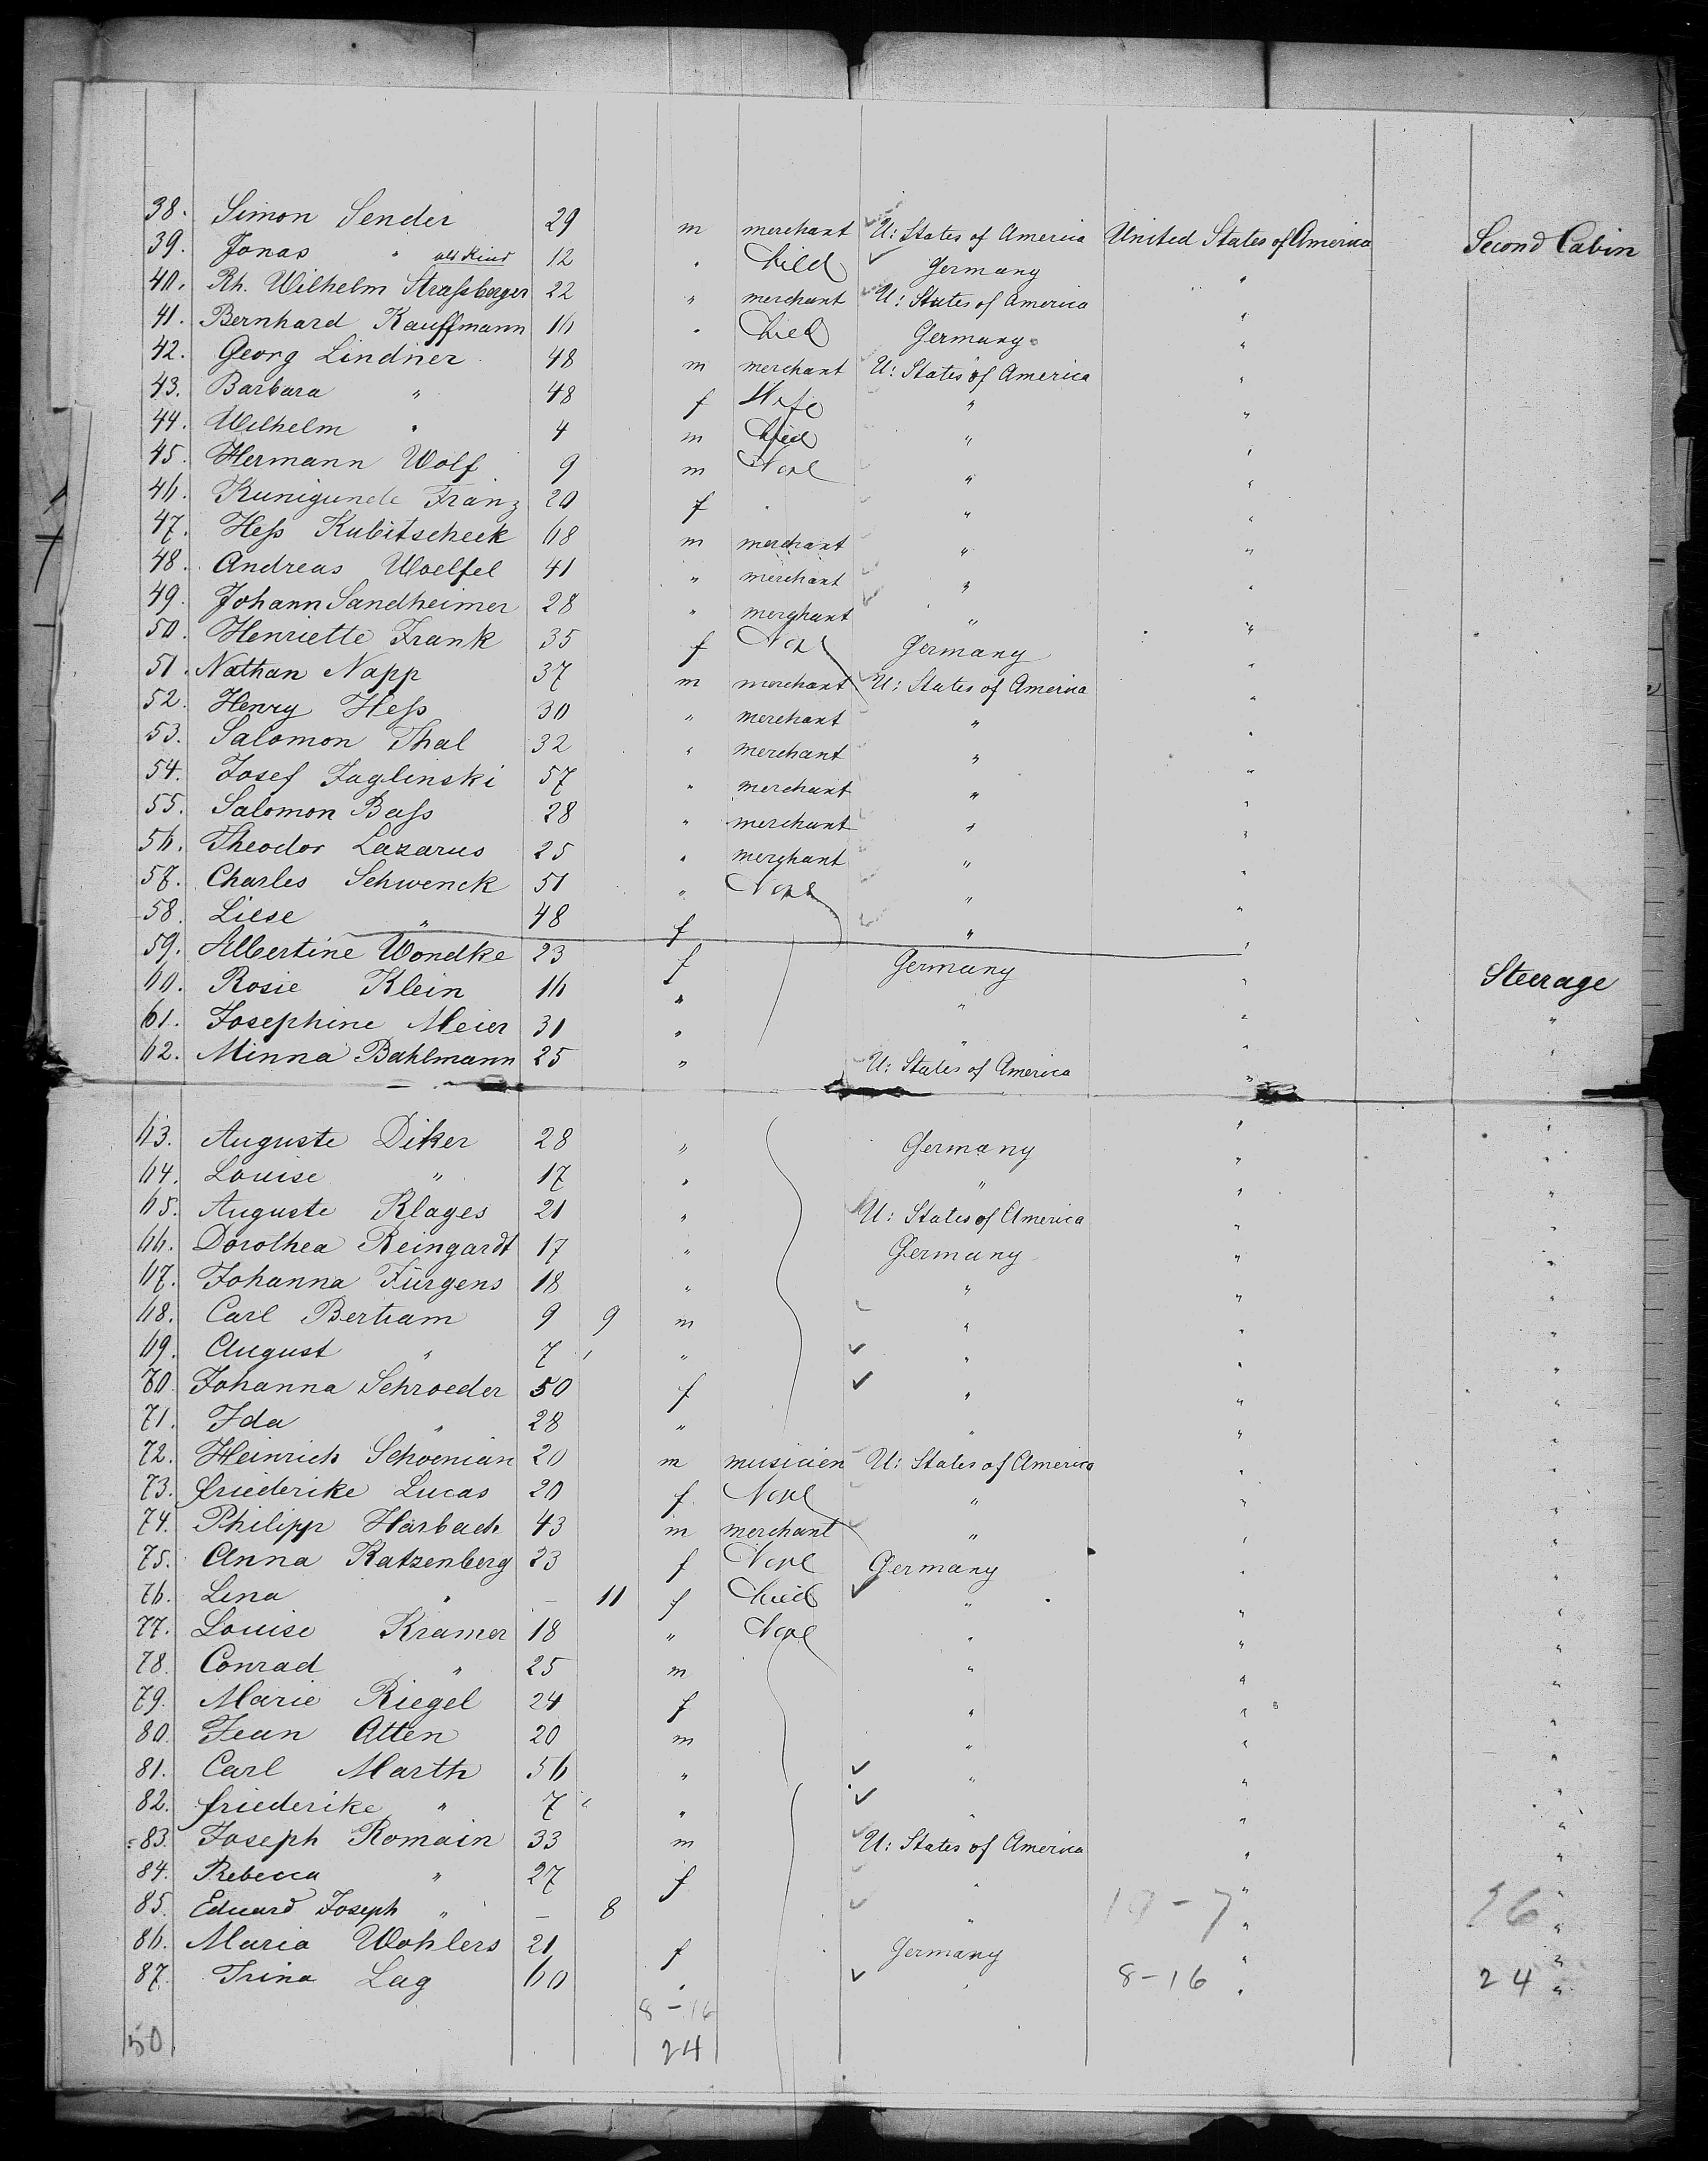 38. Simon Sender 29 m merchant U: States of America United States of America Second Cabin
39. Jonas " als Kind 12 " Child Germany "
40. Rh. Wilhelm Straßberger 22 " merchant U: States of America "
41. Bernhard Kauffmann 16 " Child Germany "
42. Georg Lindner 48 m merchant U: States of America "
43. Barbara " 48 f Wife " "
44. Wilhelm " 4 m Child " "
45. Hermann Wolf 9 m None " "
46. Kunigunde Franz 20 f " " "
47. Heß Kubitscheck 68 m merchant " "
48. Andreas Woelfel 41 " merchant " "
49. Johann Sandheimer 28 " merchant " "
50. Henriette Frank 35 f None Germany "
51. Nathan Napp 37 m merchant U: States of America "
52. Henry Heß 30 " merchant " "
53. Salomon Thal 32 " merchant " "
54. Josef Jaglinski 57 " merchant " "
55. Salomon Baß 28 " merchant " "
56. Theodor Lazarus 25 " merchant " "
57. Charles Schwenck 51 " None " "
58. Liese " 48 f " "
59. Albertine Wondke 23 f Germany " Steerage
60. Rosie Klein 16 " " " "
61. Josephine Meier 31 " " " "
62. Minna Bahlmann 25 " U: States of America "
63. Auguste Diker 28 " Germany " "
64. Louise " 17 " " " "
65. Auguste Klages 21 " U: States of America " "
66. Dorothea Reingardt 17 " Germany " "
67. Johanna Jürgens 18 " " " "
68. Carl Bertram 9 9 m " " "
69. August " 7 " " " "
70. Johanna Schroeder 50 f " " "
71. Ida " 28 " " " "
72. Heinrich Schoenian 20 m musicien U: States of America " "
73. Friederike Lucas 20 f None " " "
74. Philipp Harbach 43 m merchant " " "
75. Anna Katzenberg 23 f None Germany " "
76. Lena " – 11 f Child " " "
77. Louise Kramer 18 " None " " "
78. Conrad " 25 m " " "
79. Marie Riegel 24 f " " "
80. Jean Atten 20 m " " "
81. Carl Marth 56 " " " "
82. Friederike " 7 " " " "
83. Joseph Romain 33 m U: States of America " "
84. Rebecca " 27 f " " "
85. Eduard Joseph " – 8 " " "
86. Maria Wohlers 21 f Germany " "
87. Trina Lag 60 " " 8-16 " 24 "
8-16
50 24